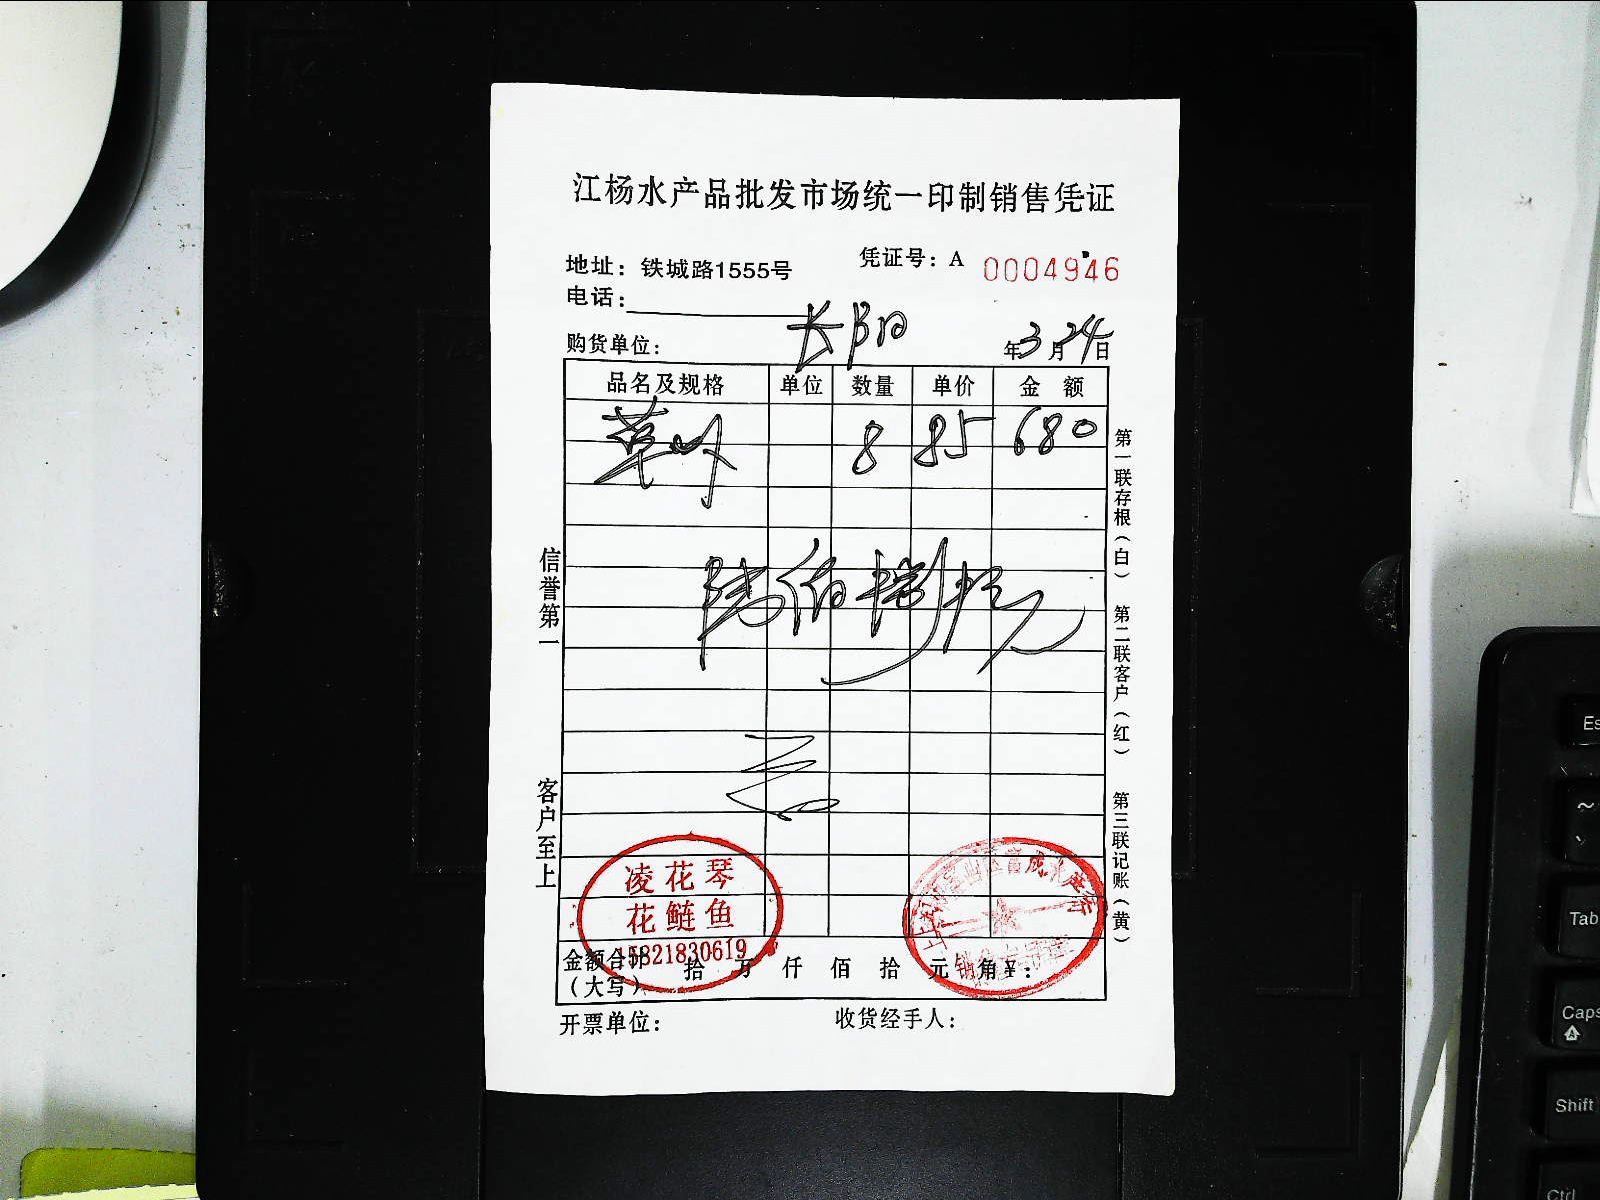 江杨水产品批发市场统一印制销售凭证
地址：铁城路1555号
凭证号：A 0004946
电话：
购货单位：长阳
年3月24日
品名及规格 单位 数量 单价 金额
草 8 85 680
陆佰捌拾元
信誉第一
客户至上
第一联存根（白）
第二联客户（红）
第三联记账（黄）
凌花琴
花鲢鱼
15821830619
金额合计（大写） 拾 万 仟 佰 拾 元 角 ¥：
开票单位：
收货经手人：
Es
~
Tab
Caps
Shift
Ctrl